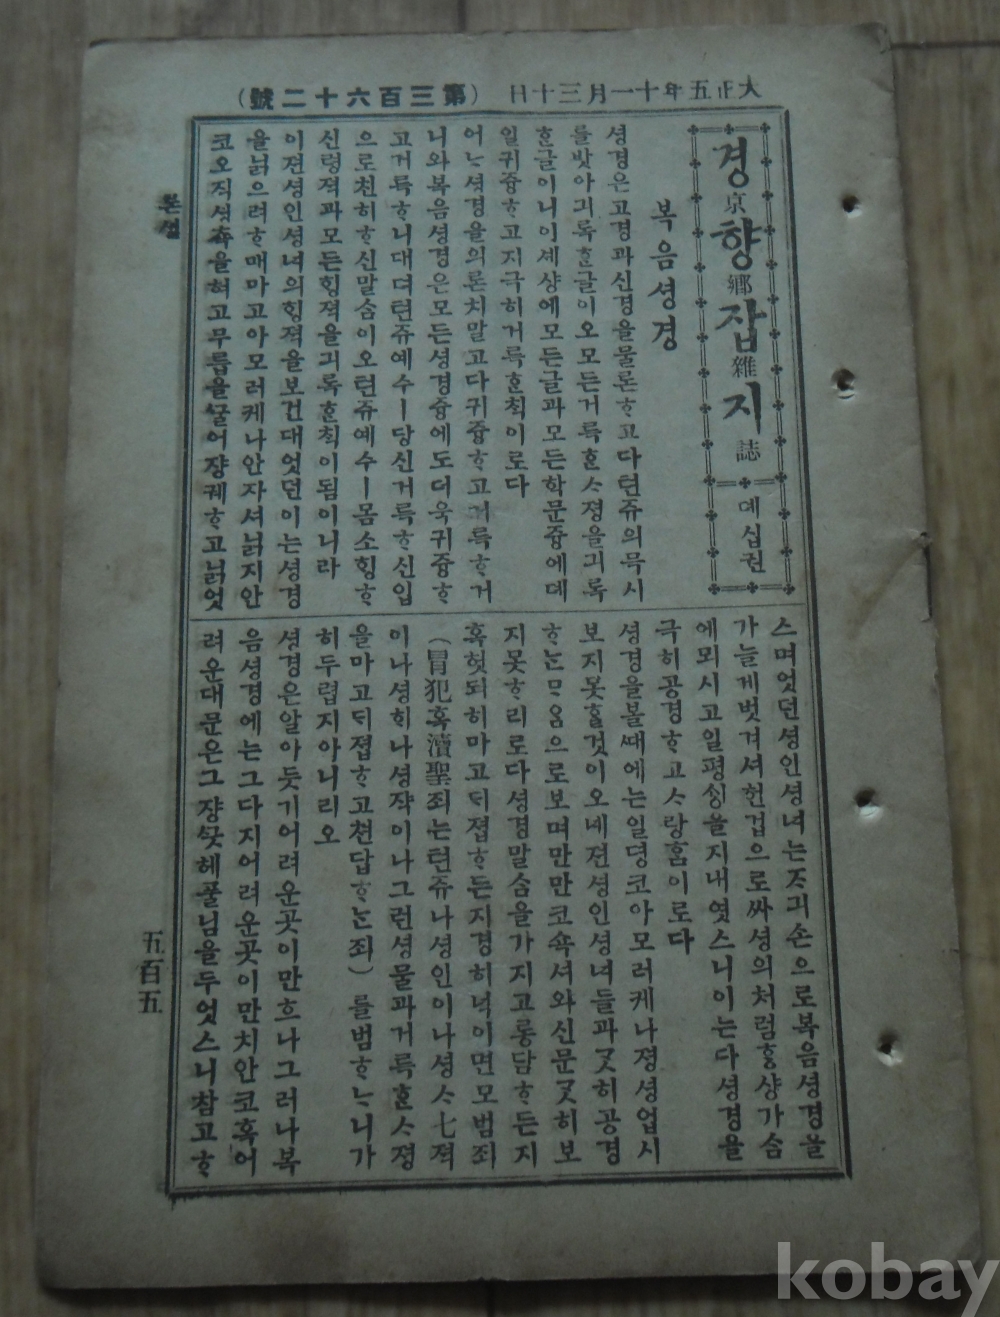 大正五年十一月三十日
(第三百六十二號)
경京향鄕잡雜지誌
뎨십권
복음셩경
셩경은고경과신경을물론ᄒᆞ고다텬쥬의묵시
를밧아긔록ᄒᆞᆫ글이오모든거륵ᄒᆞᆫᄉᆞ졍을긔록
ᄒᆞᆫ글이니이셰샹에모든글과모든학문즁에뎨
일귀즁ᄒᆞ고지극히거륵ᄒᆞᆫ칙이로다
어ᄂᆞ셩경을의론치말고다귀즁ᄒᆞ고거륵ᄒᆞ거
니와복음셩경은모든셩경즁에도더욱귀즁ᄒᆞ
고거륵ᄒᆞ니대뎌텬쥬예수ㅣ당신거륵ᄒᆞ신입
으로친히ᄒᆞ신말ᄉᆞᆷ이오텬쥬예수ㅣ몸소ᄒᆡᆼᄒᆞ
신령젹과모든ᄒᆡᆼ젹을긔록ᄒᆞᆫ칙이됨이니라
이젼셩인셩녀의ᄒᆡᆼ젹을보건대엇던이는셩경
을닑으려ᄒᆞᆯ매마고아모러케나안자셔닑지안
코오직셧촉을혀고무릅을ᄭᅮᆯ어쟝궤ᄒᆞ고닑엇
스며엇던셩인셩녀는ᄌᆞ긔손으로복음셩경을
가늘게벗겨셔헌겁으로싸셩의쳐럼ᄒᆞᆼ샹가ᄉᆞᆷ
에뫼시고일평ᄉᆡᆼ을지내엿스니이는다셩경을
극히공경ᄒᆞ고ᄉᆞ랑ᄒᆞᆷ이로다
셩경을볼ᄯᅢ에는일뎡코아모러케나졍셩업시
보지못ᄒᆞᆯ것이오녜젼셩인셩녀들과ᄀᆞᆺ히공경
ᄒᆞᄂᆞᆫᄆᆞᄋᆞᆷ으로보며만만코쇽셔와신문ᄀᆞᆺ히보
지못ᄒᆞ리로다셩경말ᄉᆞᆷ을가지고롱담ᄒᆞ든지
혹헛되히마고ᄃᆡ졉ᄒᆞ든지경히녁이면모범죄
(冒犯죄瀆聖죄는텬쥬나셩인이나셩ᄉᆞ七젹
이나셩회나셩쟉이나그런셩물과거륵ᄒᆞᆫᄉᆞ졍
을마고ᄃᆡ졉ᄒᆞ고쳔답ᄒᆞᄂᆞᆫ죄)를범ᄒᆞᄂᆞ니가
히두렵지아니리오
셩경은알아듯기어려운곳이만흐나그러나복
음셩경에는그다지어려운곳이만치안코혹어
려운대문은그쟝ᄭᅳᆺ헤풀님을두엇스니참고ᄒᆞ
론셜
五百五
kobay